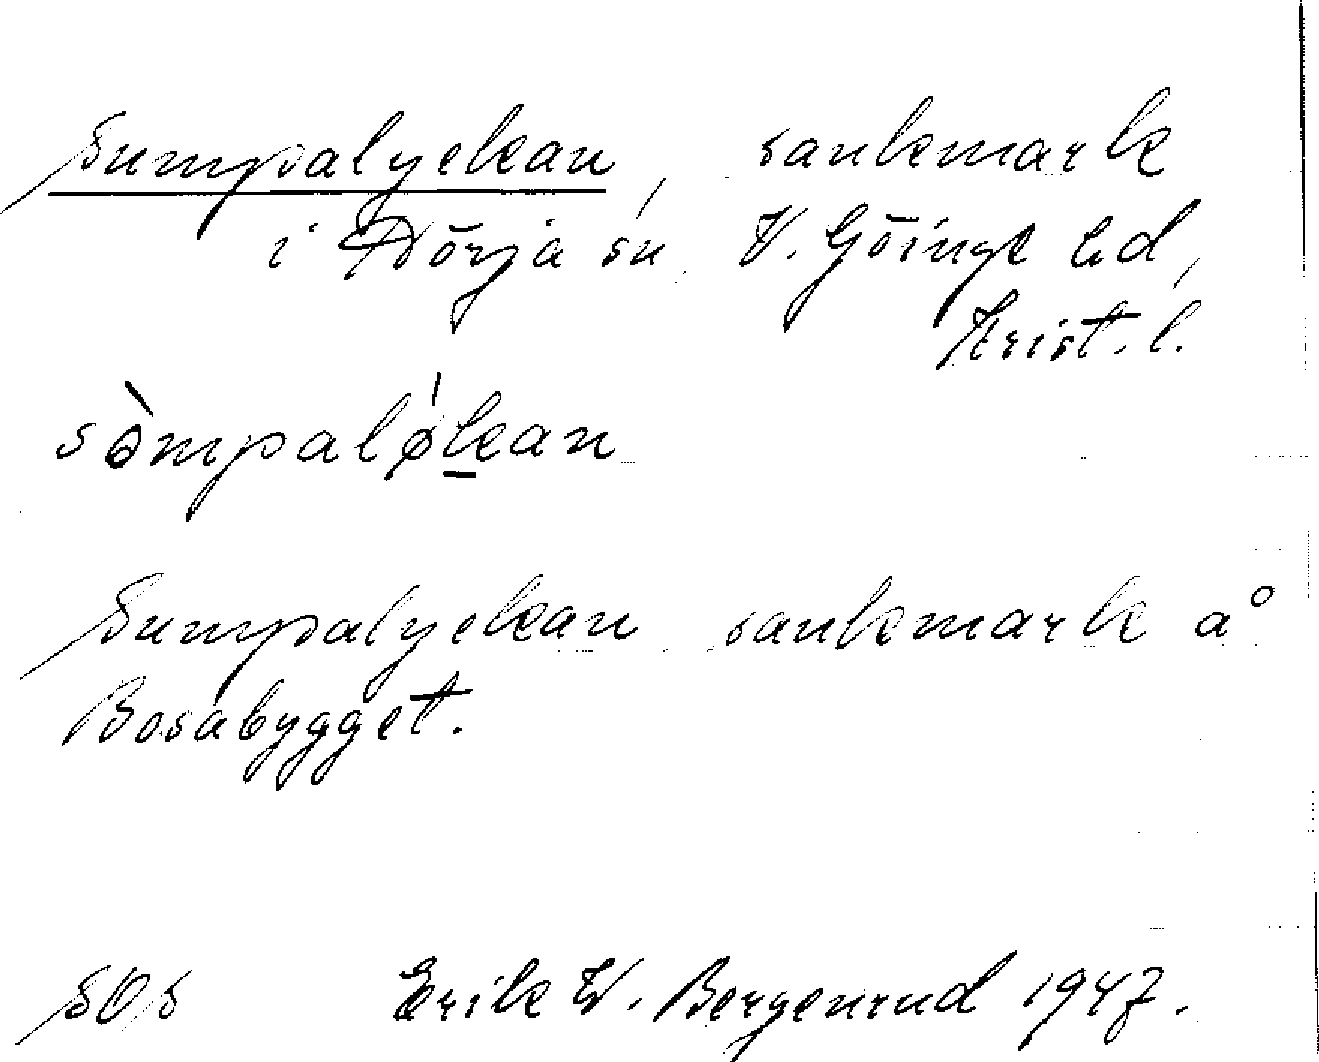 Sumpalyckan, sankmark
i Nörja sn, V. Göinge hd,
Krist. l.
sòmpalø̍kan
Sumpalyckan sankmark å
Bosabygget.
SOS Erik W. Bergenrud 1947.